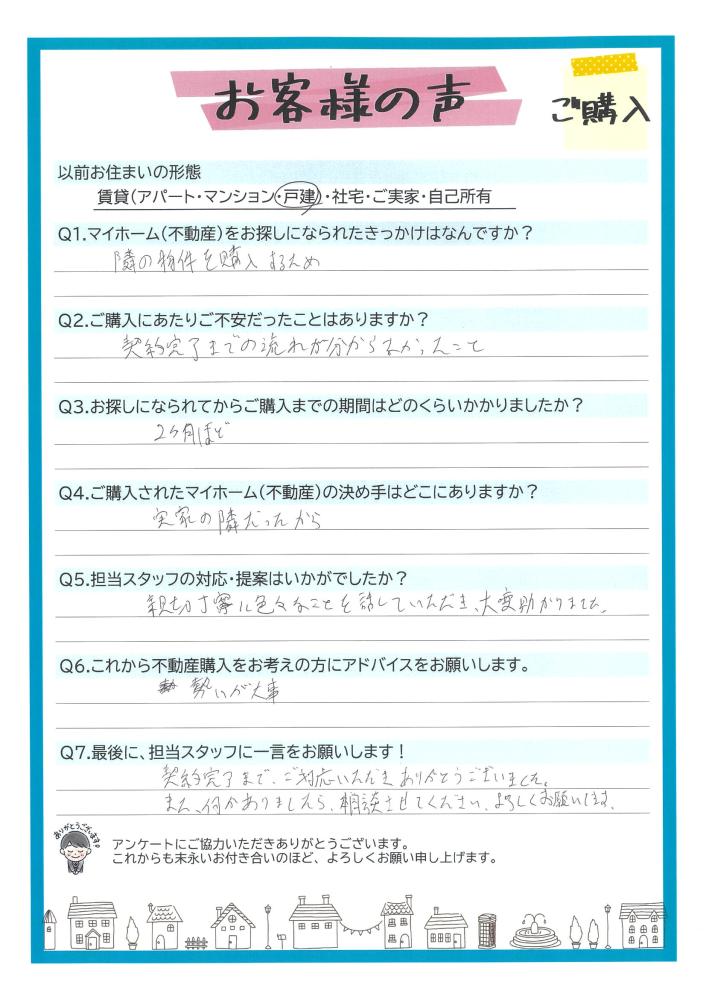 お客様の声
ご購入
以前お住まいの形態
賃貸(アパート・マンション・戸建)・社宅・ご実家・自己所有
Q1.マイホーム(不動産)をお探しになられたきっかけはなんですか?
隣の物件を購入するため
Q2.ご購入にあたりご不安だったことはありますか?
契約完了までの流れが分からなかったこと
Q3.お探しになられてからご購入までの期間はどのくらいかかりましたか?
2ヶ月ほど
Q4.ご購入されたマイホーム(不動産)の決め手はどこにありますか?
実家の隣だったから
Q5.担当スタッフの対応・提案はいかがでしたか?
親切丁寧に色々なことを話していただき、大変助かりました。
Q6.これから不動産購入をお考えの方にアドバイスをお願いします。
勢いが大事
Q7.最後に、担当スタッフに一言をお願いします!
契約完了まで、ご対応いただきありがとうございました。
また、何かありましたら、相談させてください。よろしくお願いします。
ありがとうございます。
アンケートにご協力いただきありがとうございます。
これからも末永いお付き合いのほど、よろしくお願い申し上げます。